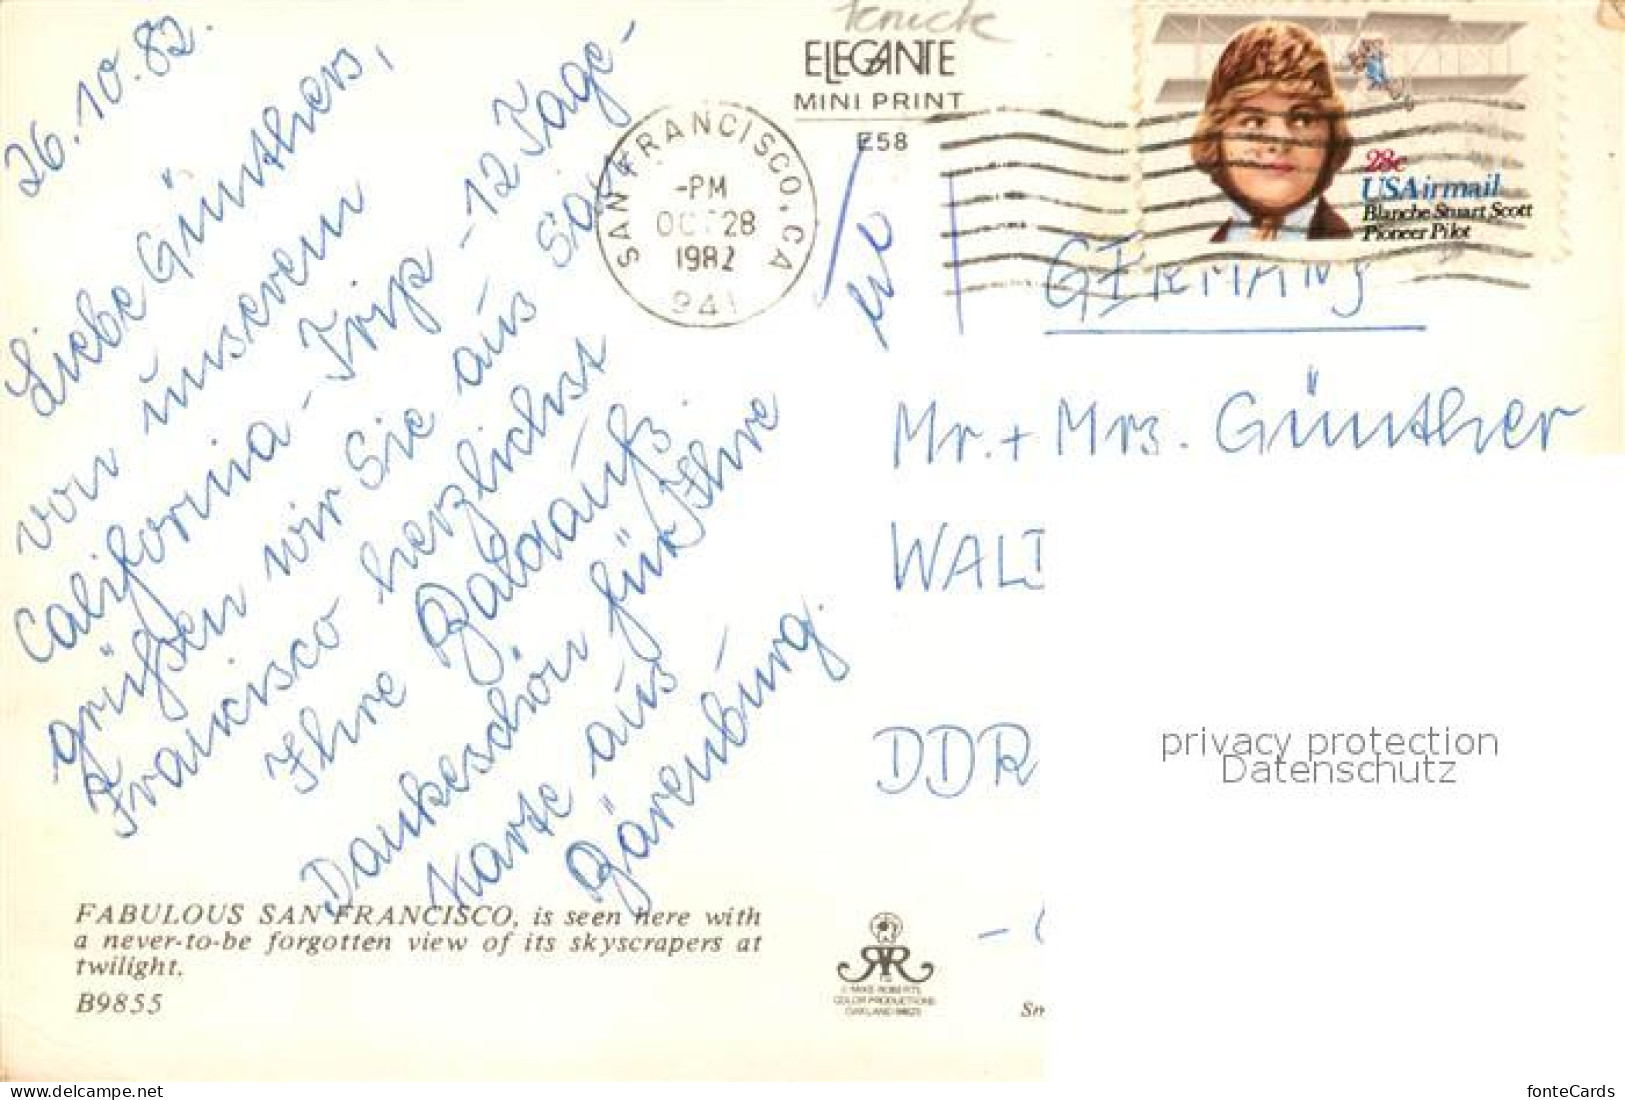 26.10.82.
Liebe Günthers,
von unserem
California-Trip - 12 Tage-
grüßen wir Sie aus San
Francisco herzlichst
Ihre
Dankeschön für Ihre
Karte aus
Bärenburg.
FABULOUS SAN FRANCISCO, is seen here with
a never-to-be forgotten view of its skyscrapers at
twilight.
B9855
ELEGANTE
MINI PRINT
E58
SAN FRANCISCO, CA
-PM
OCT 28
1982
941
28c
USAirmail
Blanche Stuart Scott
Pioneer Pilot
GERMANY
Mr. + Mrs. Günther
WALT
DDR
© MIKE ROBERTS
COLOR PRODUCTIONS
OAKLAND 94623
privacy protection
Datenschutz
www.delcampe.net
fonteCards